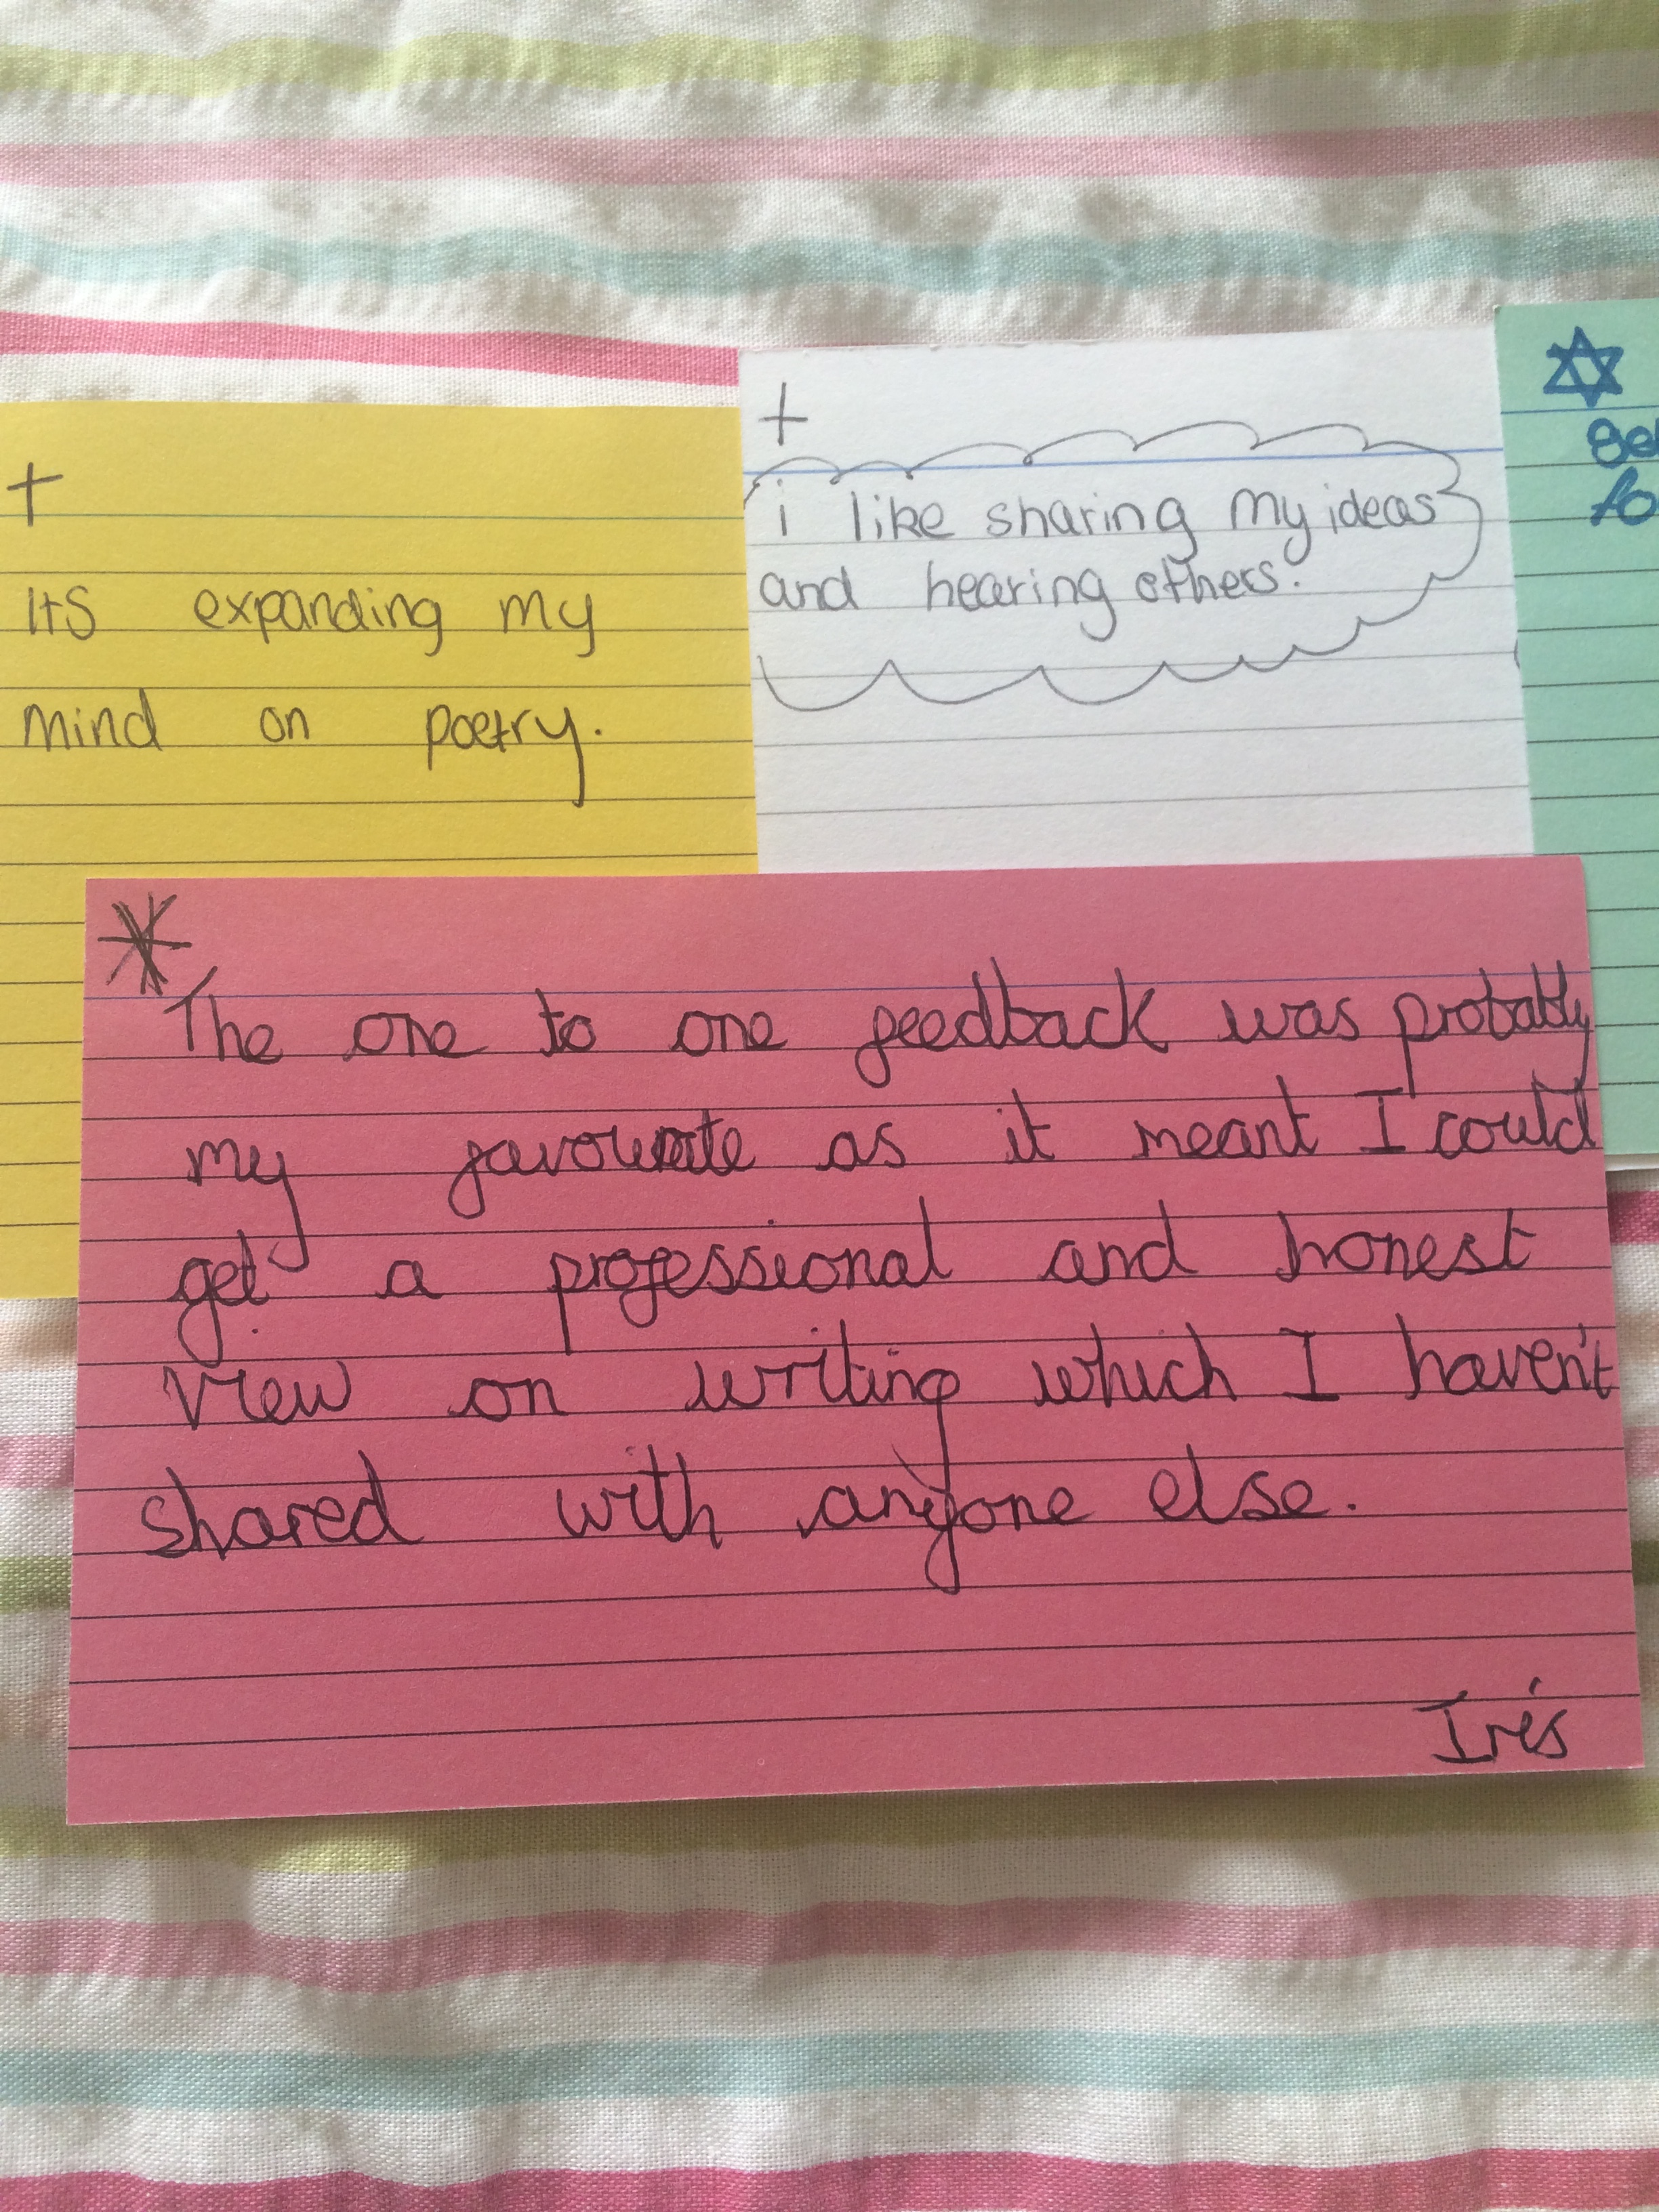 +
Its expanding my
mind on poetry.
+
i like sharing my ideas
and hearing others.
The one to one feedback was probably
my favourite as it meant I could
get a professional and honest
view on writing which I haven't
shared with anyone else.
Iris